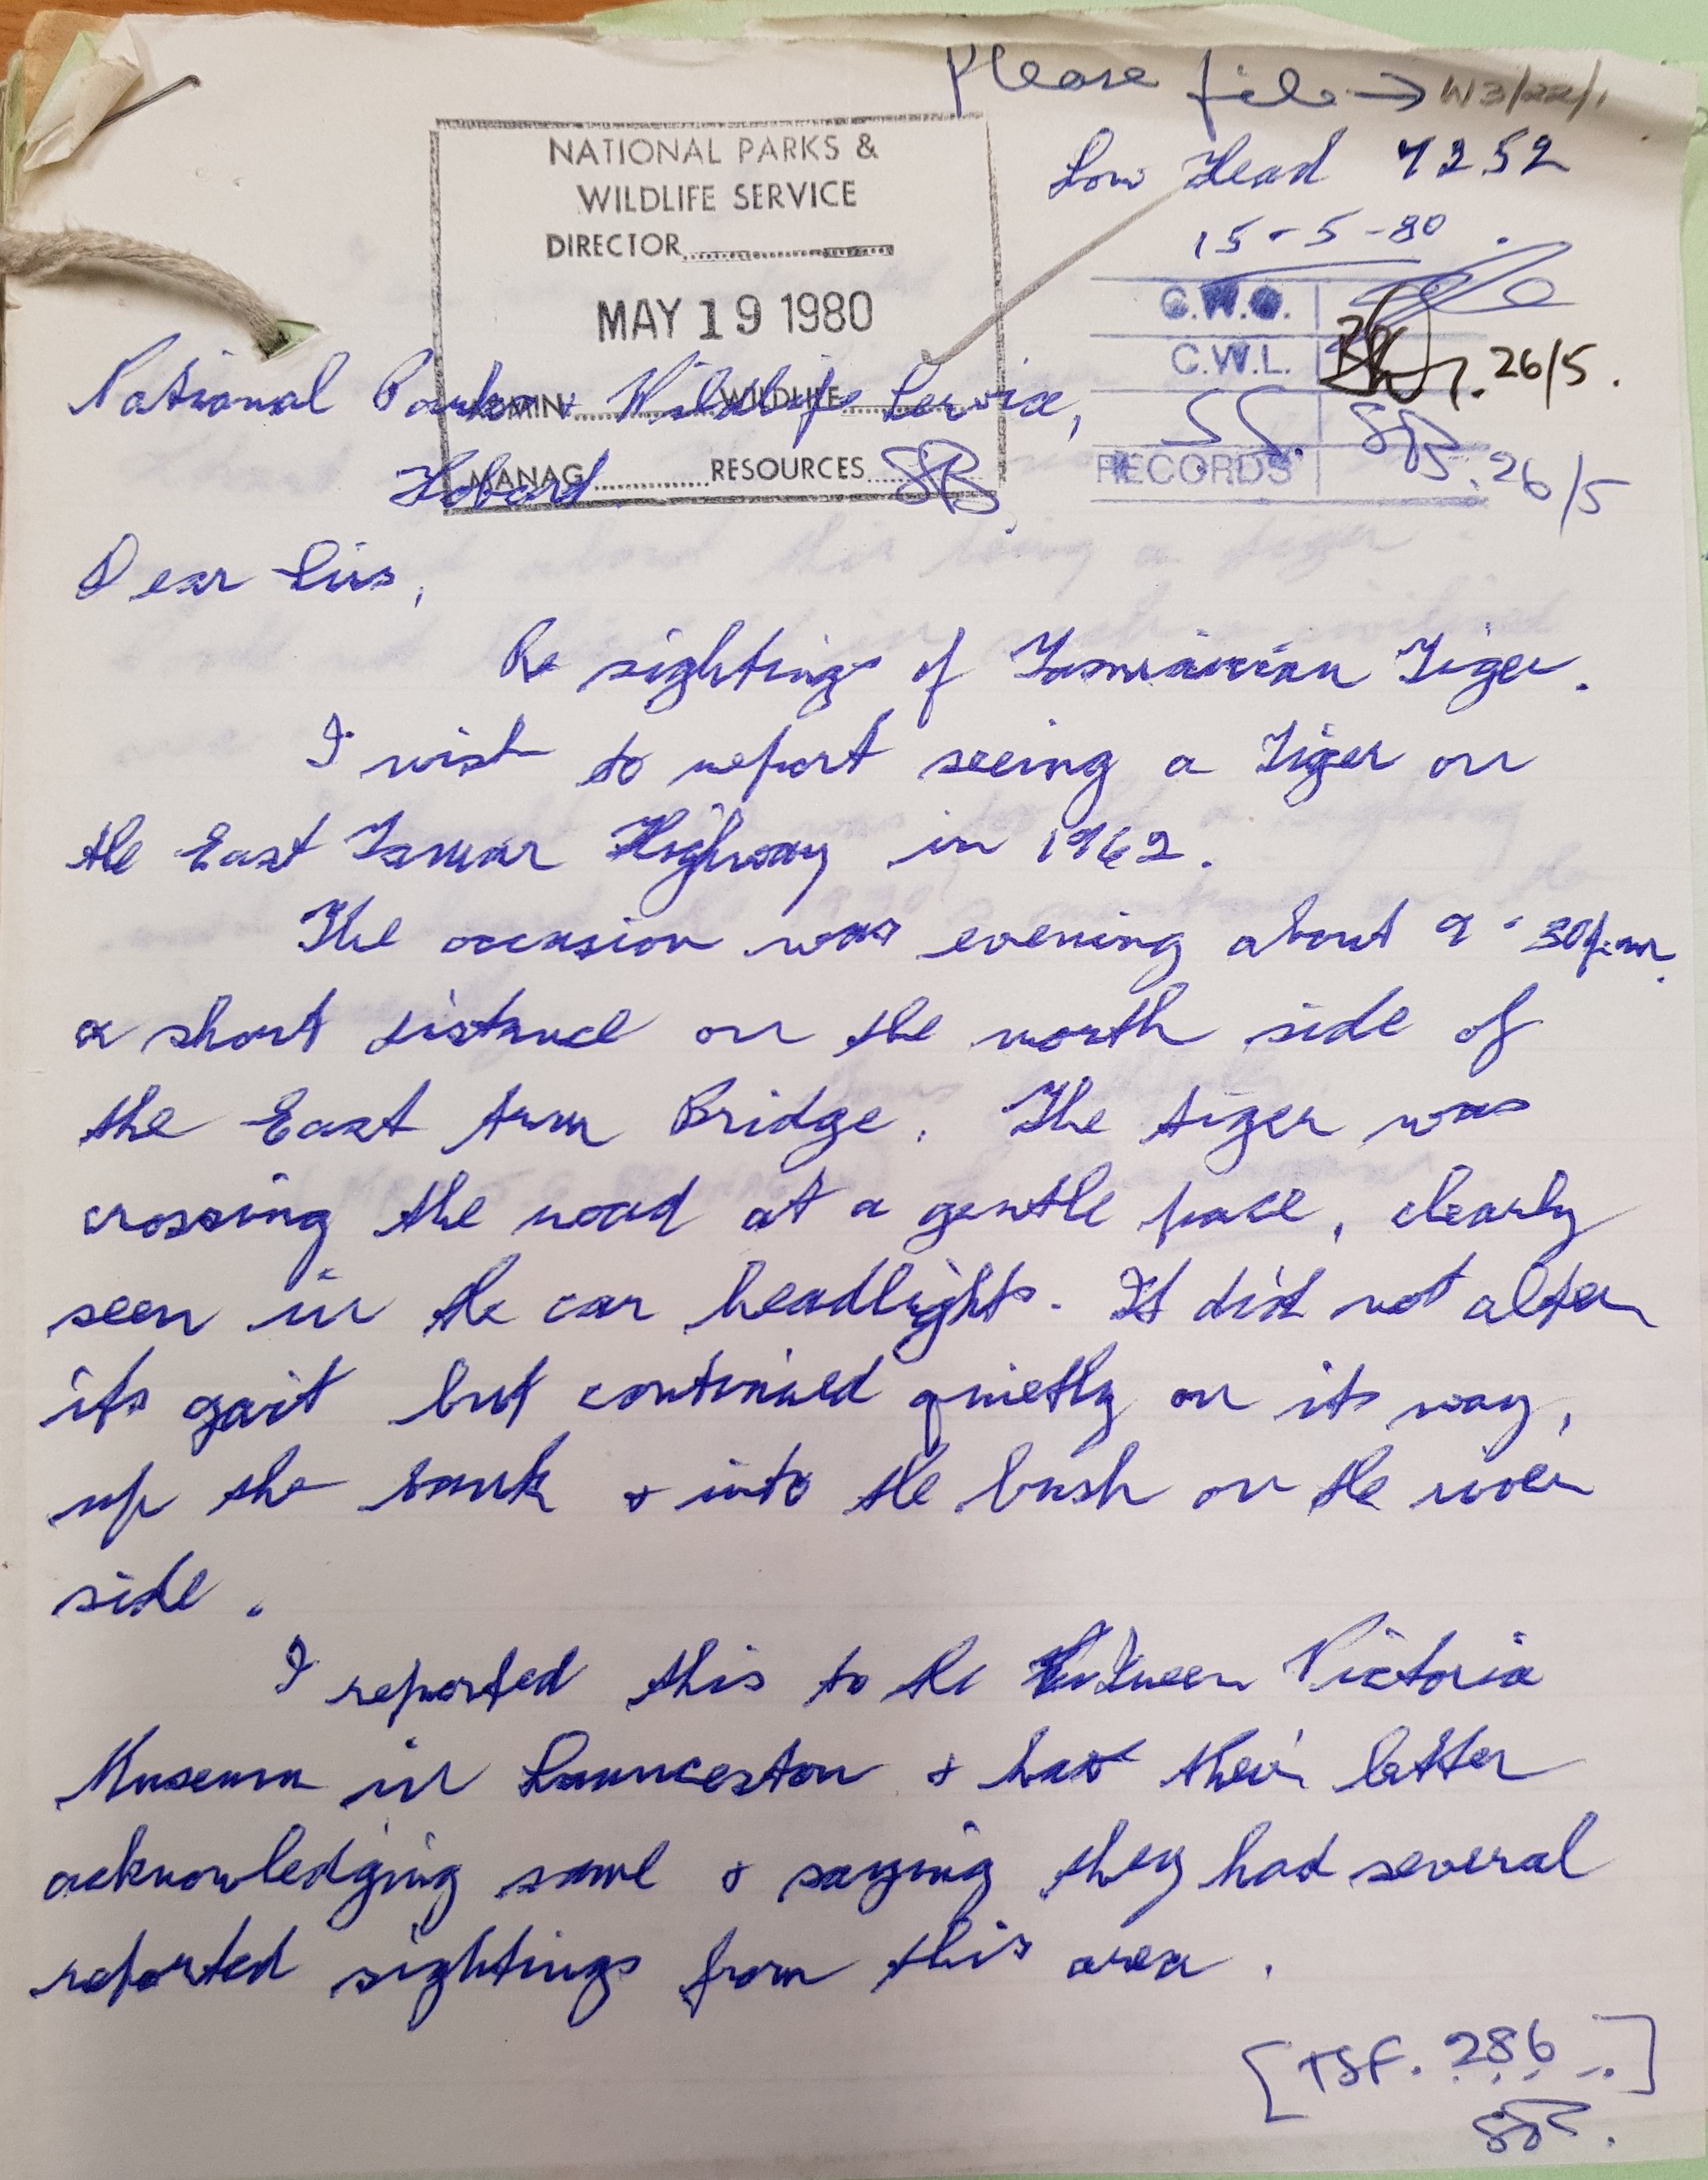 Please file → W3/22/1
NATIONAL PARKS &
WILDLIFE SERVICE
DIRECTOR
MAY 19 1980
ADMIN. WILDLIFE
MANAG. RESOURCES
Low Head 7252
15-5-80
C.W.O.
C.W.L. 26/5.
RECORDS 26/5
National Parks & Wildlife Service,
Hobart
Dear Sirs,
Re sightings of Tasmanian Tiger.
I wish to report seeing a Tiger on
the East Tamar Highway in 1962.
The occasion was evening about 9.30p.m.
a short distance on the north side of
the East Arm Bridge. The tiger was
crossing the road at a gentle pace, clearly
seen in the car headlights. It did not alter
its gait but continued quietly on its way,
up the bank & into the bush on the river
side.
I reported this to the Queen Victoria
Museum in Launceston & have their letter
acknowledging same & saying they had several
reported sightings from this area.
[TSF. 286]